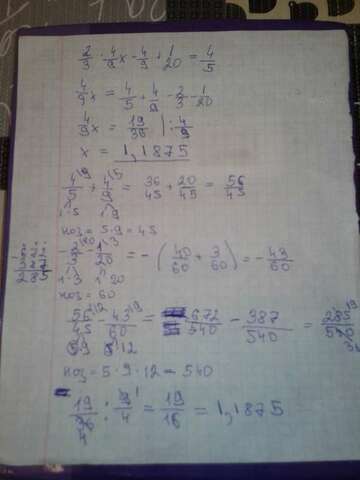 2/3 · 4/9 x - 4/9 + 1/20 = 4/5
4/9 x = 4/5 + 4/9 - 2/3 - 1/20
4/9 x = 19/36 | : 4/9
x = 1,1875
4/5 + 4/9 = 36/45 + 20/45 = 56/45
1·5 1·9
ноз = 5·9 = 45
-2/3 - 1/20 = -(40/60 + 3/60) = -43/60
1·3 1·20
ноз = 60
56/45 - 43/60 = 672/540 - 387/540 = 285/540
5·9 5·12
ноз = 5·9·12 = 540
19/36 : 4/9 = 19/16 = 1,1875